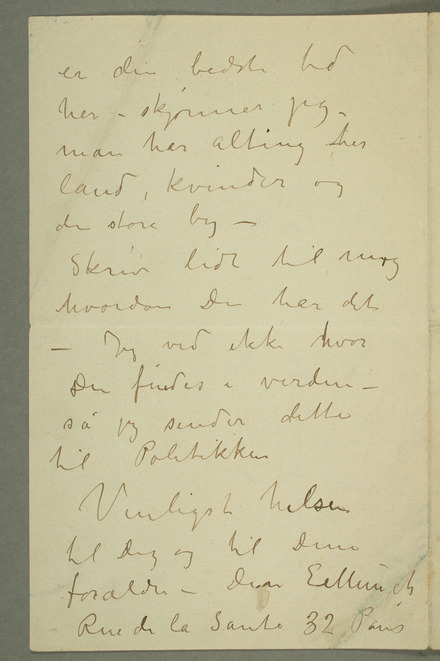 er den bedste tid
her – skjønner jeg –
man har alting her
land, kvinder og
den store by –
Skriv lidt til mig
hvordan Du har det
– Jeg ved ikke hvor
Du findes i verden –
så jeg sender dette
til Politikken
Venligst hilsen
til Dig og til Dine
forældre – Din E Munch
Rue de la Santé 32 Paris